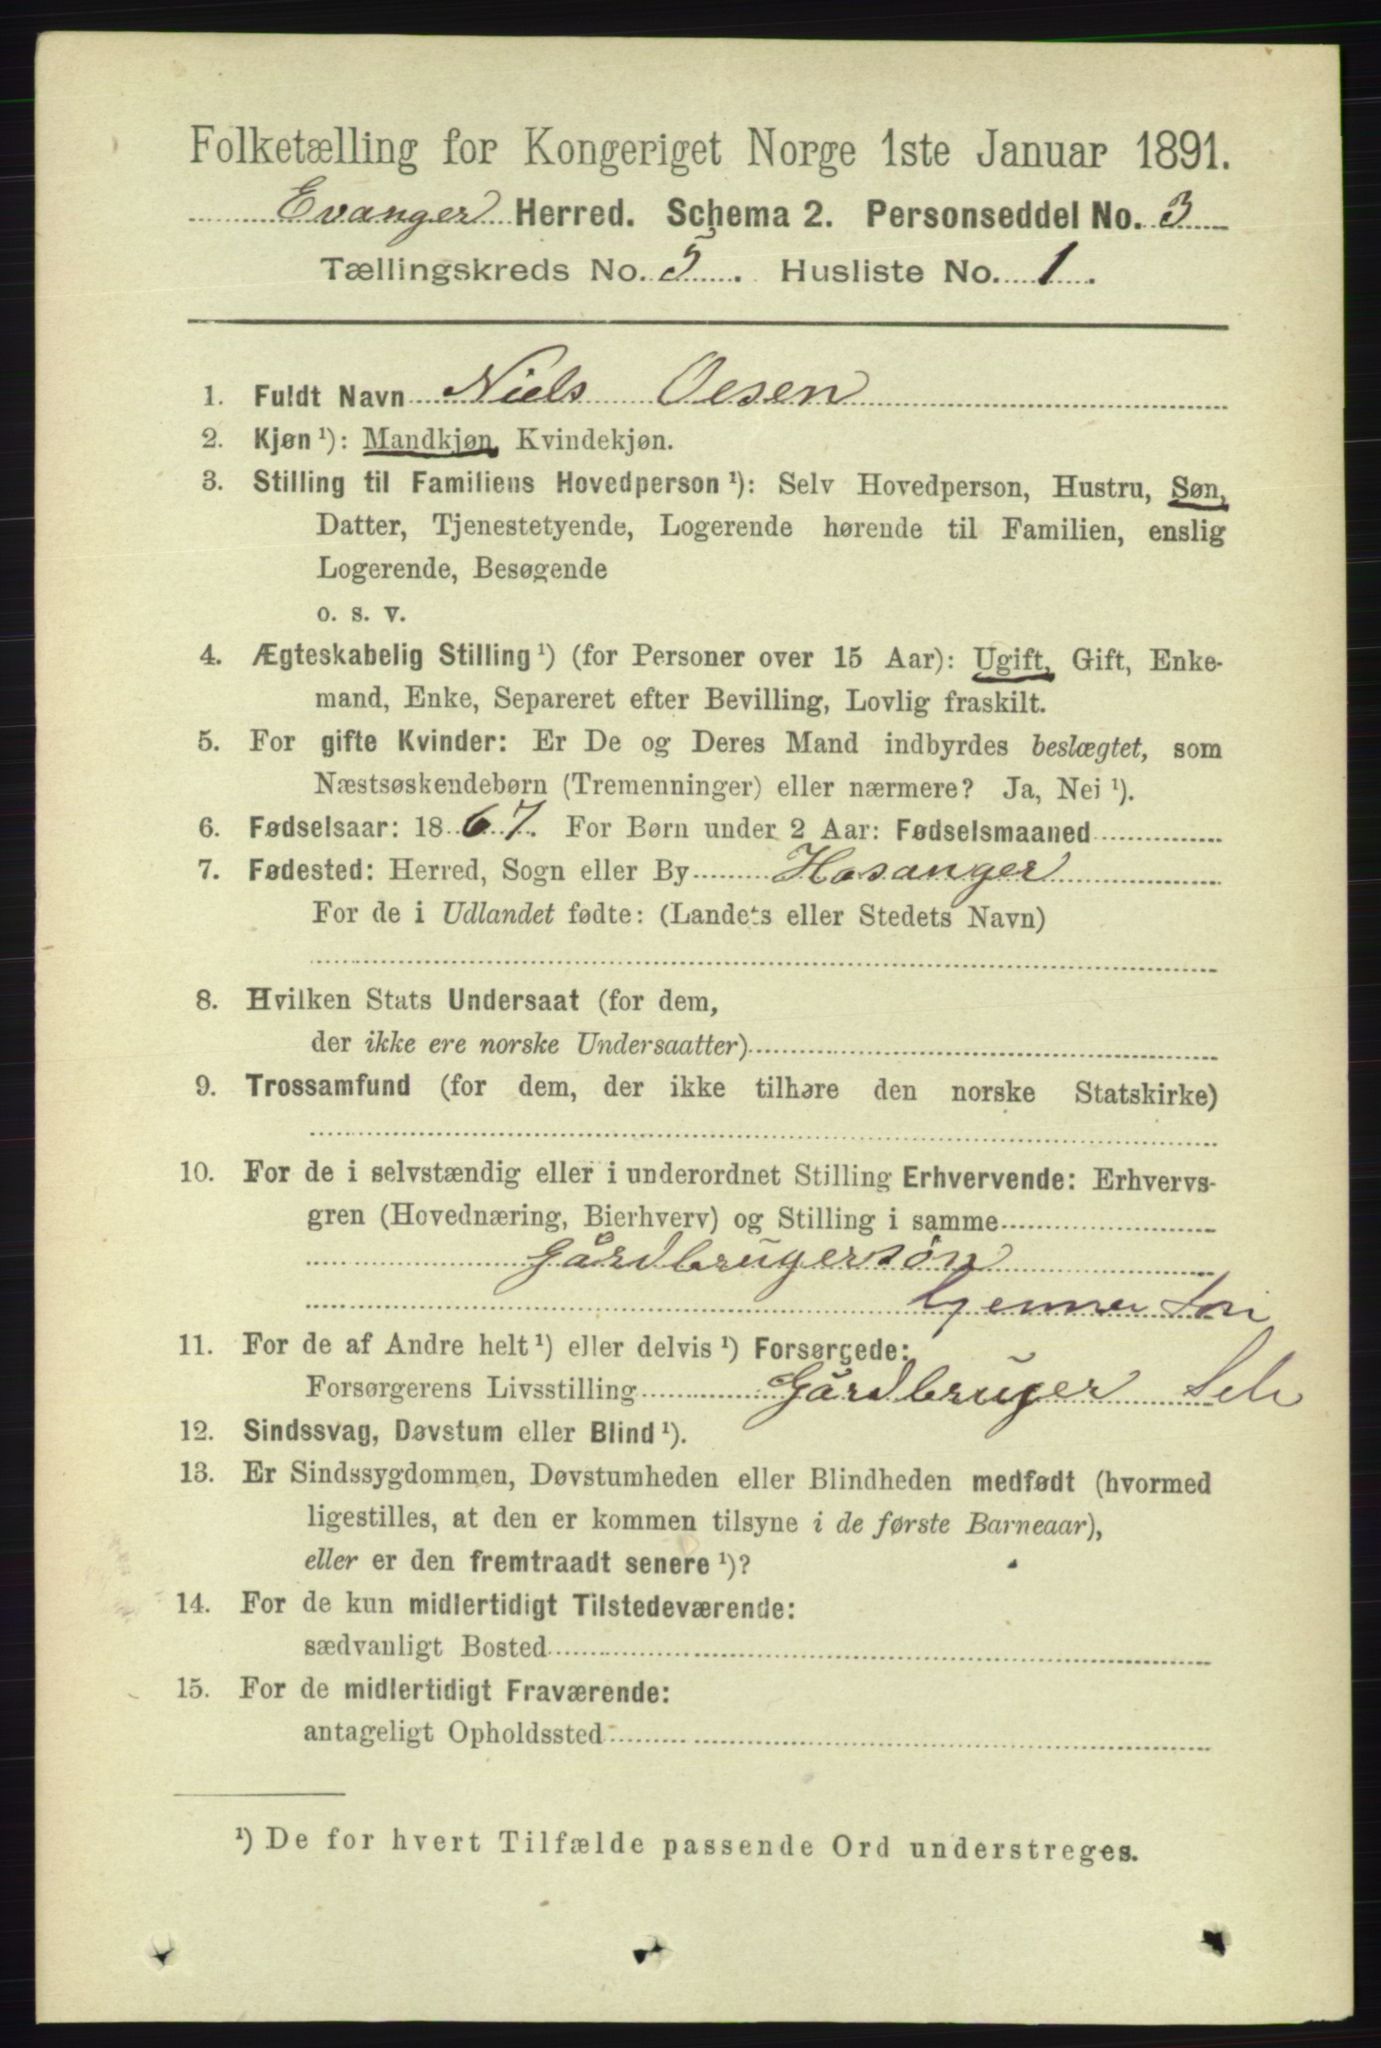 Folketælling for Kongeriget Norge 1ste Januar 1891.
Evanger Herred. Schema 2. Personseddel No. 3
Tællingskreds No. 5. Husliste No. 1.
1. Fuldt Navn Niels Olsen
2. Kjøn ¹): Mandkjøn, Kvindekjøn.
3. Stilling til Familiens Hovedperson ¹): Selv Hovedperson, Hustru, Søn,
Datter, Tjenestetyende, Logerende hørende til Familien, enslig
Logerende, Besøgende
o. s. v.
4. Ægteskabelig Stilling ¹) (for Personer over 15 Aar): Ugift, Gift, Enke-
mand, Enke, Separeret efter Bevilling, Lovlig fraskilt.
5. For gifte Kvinder: Er De og Deres Mand indbyrdes beslægtet, som
Næstsøskendebørn (Tremenninger) eller nærmere? Ja, Nei ¹).
6. Fødselsaar: 1867. For Børn under 2 Aar: Fødselsmaaned
7. Fødested: Herred, Sogn eller By Hosanger
For de i Udlandet fødte: (Landets eller Stedets Navn)
8. Hvilken Stats Undersaat (for dem,
der ikke ere norske Undersaatter)
9. Trossamfund (for dem, der ikke tilhøre den norske Statskirke)
10. For de i selvstændig eller i underordnet Stilling Erhvervende: Erhvervs-
gren (Hovednæring, Bierhverv) og Stilling i samme
Gårdbrugersøn
11. For de af Andre helt ¹) eller delvis ¹) Forsørgede:
Forsørgerens Livsstilling Gårdbruger
12. Sindssvag, Døvstum eller Blind ¹).
13. Er Sindssygdommen, Døvstumheden eller Blindheden medfødt (hvormed
ligestilles, at den er kommen tilsyne i de første Barneaar),
eller er den fremtraadt senere ¹)?
14. For de kun midlertidigt Tilstedeværende:
sædvanligt Bosted
15. For de midlertidigt Fraværende:
antageligt Opholdssted
¹) De for hvert Tilfælde passende Ord understreges.